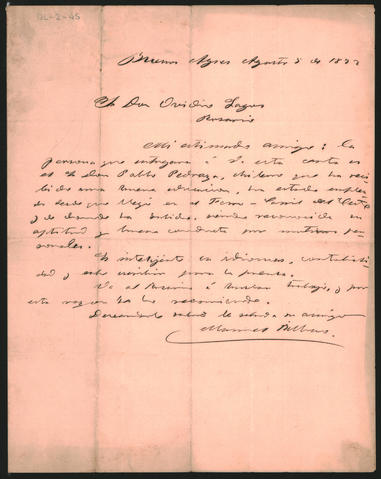 OL-2-45
Buenos Ayres Agosto 5 de 1877
Sr Don Ovidio Lagos
Rosario
Mi estimado amigo: la
persona que entregará á V. esta carta es
el Sr Don Pablo Pedraza, chileno que ha reci-
bido una buena educacion, ha estado emplea-
desde que llegó en el Ferro-Carril del
y de donde ha salido, siendo reconocida su
aptitud y buena conducta por motivos per-
sonales.
Es inteligente en idiomas, contabili-
dad y sabe escribir para la prensa.
Va al Rosario á buscar trabajo, y por
esta razon se lo recomiendo.
Deseandole salud le saluda su amigo
Manuel Bilbao.